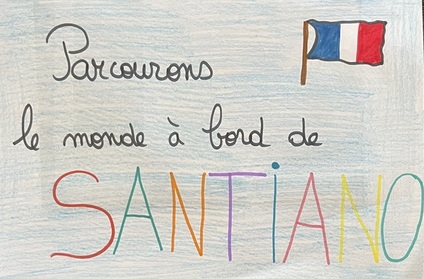 Parcourons
le monde à bord de
SANTiANO